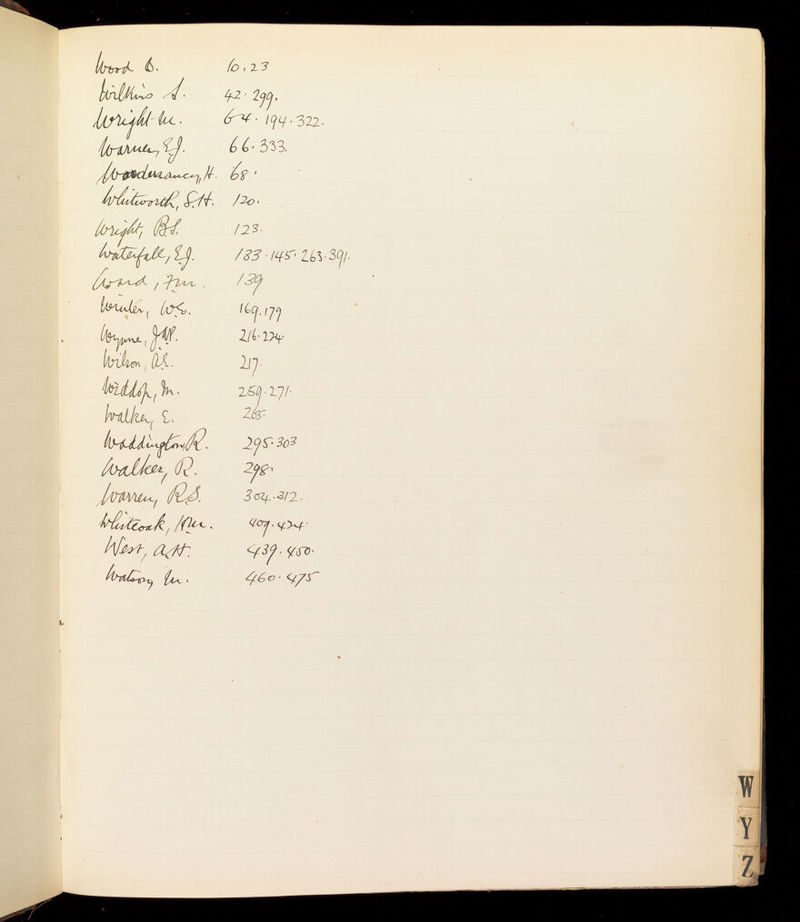 Wood D. 10.23
Wilkins S. 42.299.
Wright M. 64.194.322.
Warner, E.J. 66.333.
H. 68.
Whitworth, S.H. 120.
Wright, B.S. 123.
Waterfall, E.J. 133.145.263.391.
Ward, 139
Winter, W.S. 169.179
Wynne, J.W.P. 216.224
Wilson, A.E. 217.
Widdop, M. 259.271.
Walker, E. 265.
Waddington R. 295.303
Walker, R. 298.
Warren, R.S. 304.312.
Whiteoak, Wm. 409.424.
West, A.H. 439.450.
Watson, M. 460.475
W
Y
Z